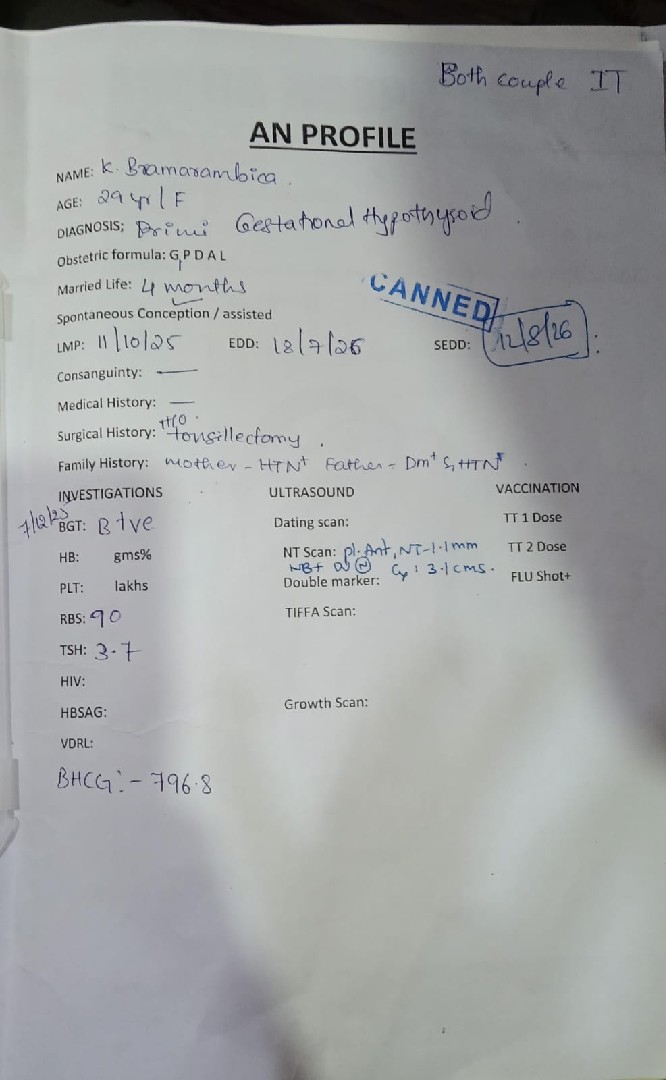 Both couple IT
AN PROFILE
NAME: K. Bramarambica
AGE: 29 yr / F
DIAGNOSIS: Primi Gestational Hypothyroid.
Obstetric formula: G1 P D A L
Married Life: 4 months
CANNED
Spontaneous Conception / assisted
LMP: 11/10/25 EDD: 18/7/26 SEDD: 12/8/26
Consanguinty: —
Medical History: —
Surgical History: H/O tonsillectomy.
Family History: mother - HTN+ Father - Dm+ HTN+
INVESTIGATIONS ULTRASOUND VACCINATION
7/12/25
BGT: B +ve Dating scan: TT 1 Dose
HB: gms% NT Scan: pl. Ant, NT-1.1mm TT 2 Dose
NB+ DV (N) Cx: 3.1cms.
PLT: lakhs Double marker: FLU Shot+
RBS: 90 TIFFA Scan:
TSH: 3.7
HIV:
HBSAG: Growth Scan:
VDRL:
BHCG:- 796.8